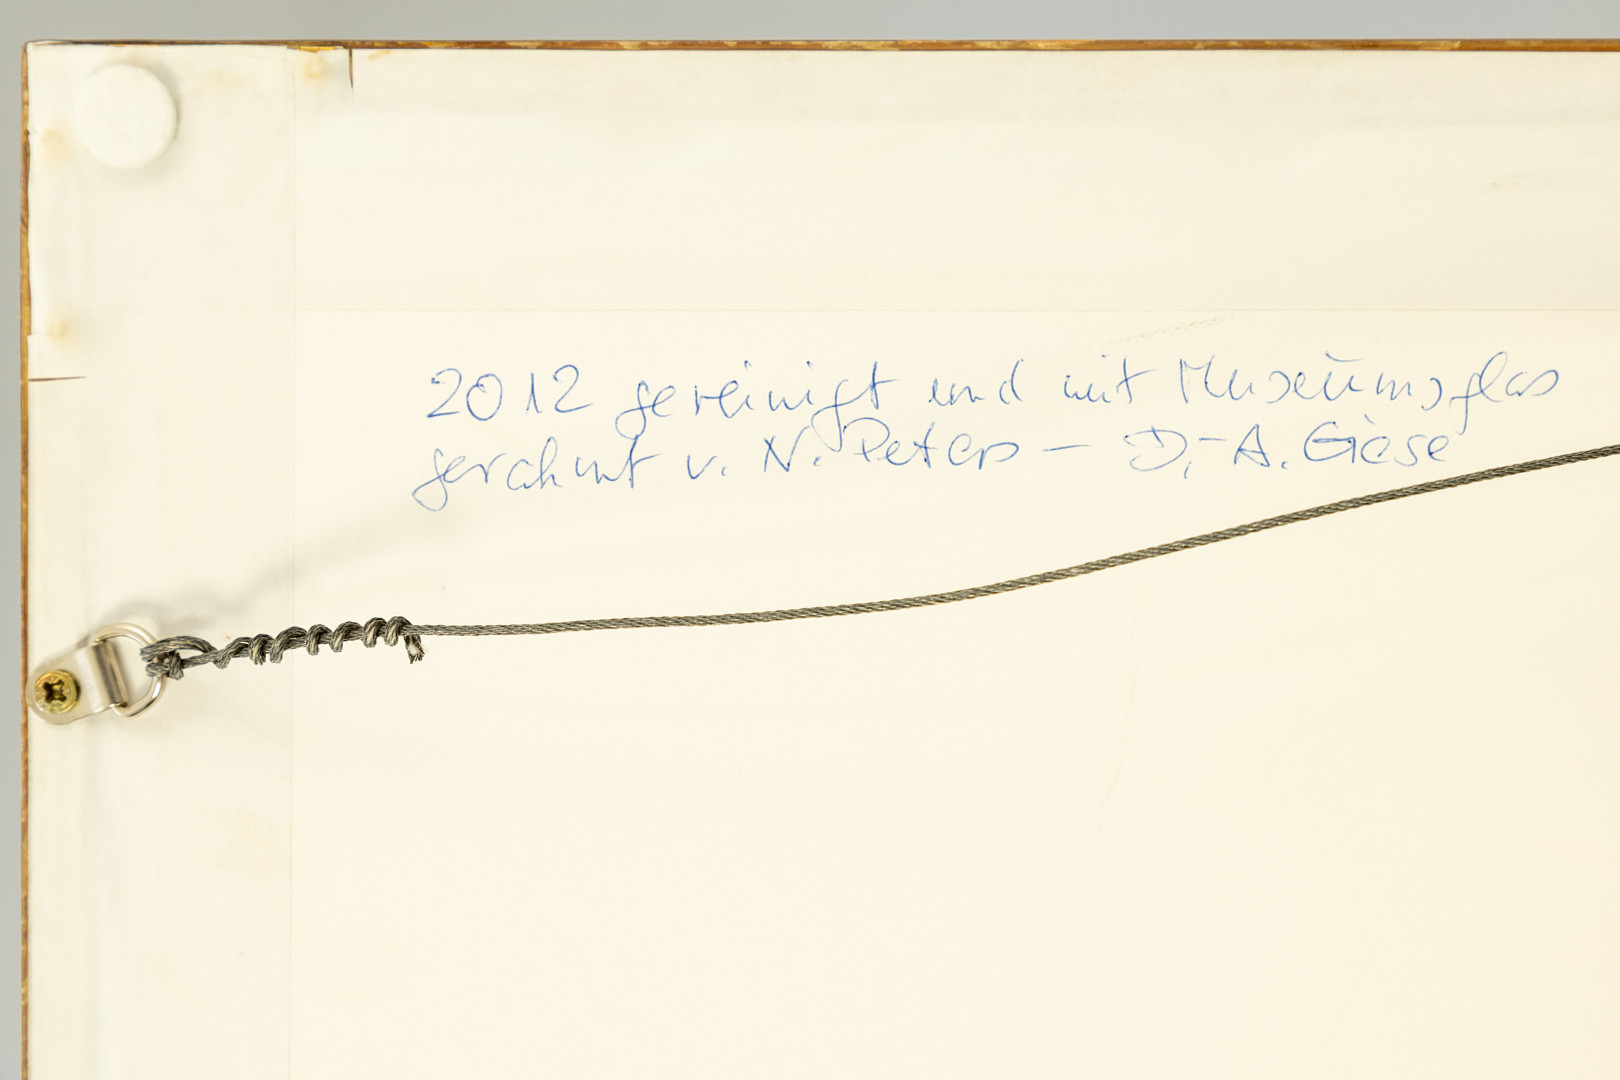 2012 gereinigt und mit Museumsglas
gerahmt v. N. Peters – D.-A. Giese